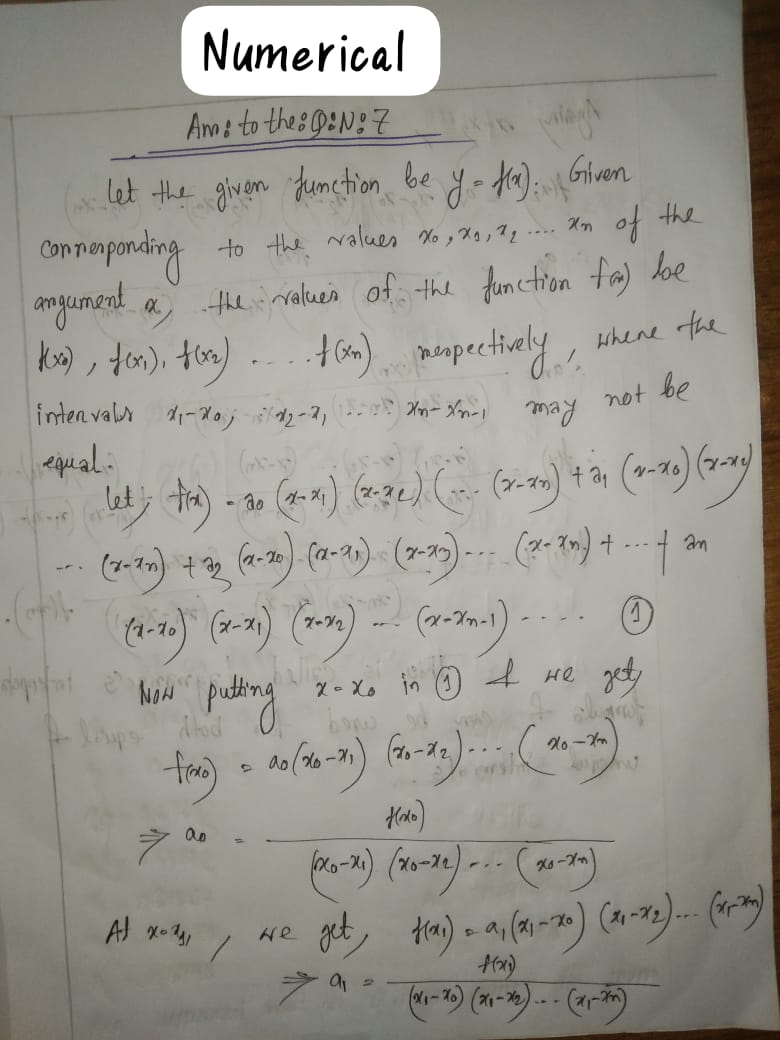 Numerical
Ans: to the: Q: N: 7
Let the given function be y = f(x). Given
corresponding to the values x₀, x₁, x₂ .... xₙ of the
argument x, the values of the function f(x) be
f(x₀), f(x₁), f(x₂) ..... f(xₙ) respectively, where the
intervals x₁-x₀, x₂-x₁ ..... xₙ-xₙ₋₁ may not be
equal.
Let, f(x) = a₀ (x-x₁) (x-x₂) (.... (x-xₙ) + a₁ (x-x₀) (x-x₂)
... (x-xₙ) + a₂ (x-x₀) (x-x₁) (x-x₃) ... (x-xₙ) + ... + aₙ
(x-x₀) (x-x₁) (x-x₂) ... (x-xₙ₋₁) ..... ①
Now putting x = x₀ in ① & we get,
f(x₀) = a₀(x₀-x₁) (x₀-x₂) ... (x₀-xₙ)
⇒ a₀ = f(x₀) / (x₀-x₁) (x₀-x₂) ... (x₀-xₙ)
At x=x₁, we get, f(x₁) = a₁(x₁-x₀) (x₁-x₂) ... (x₁-xₙ)
⇒ a₁ = f(x₁) / (x₁-x₀) (x₁-x₂) ... (x₁-xₙ)